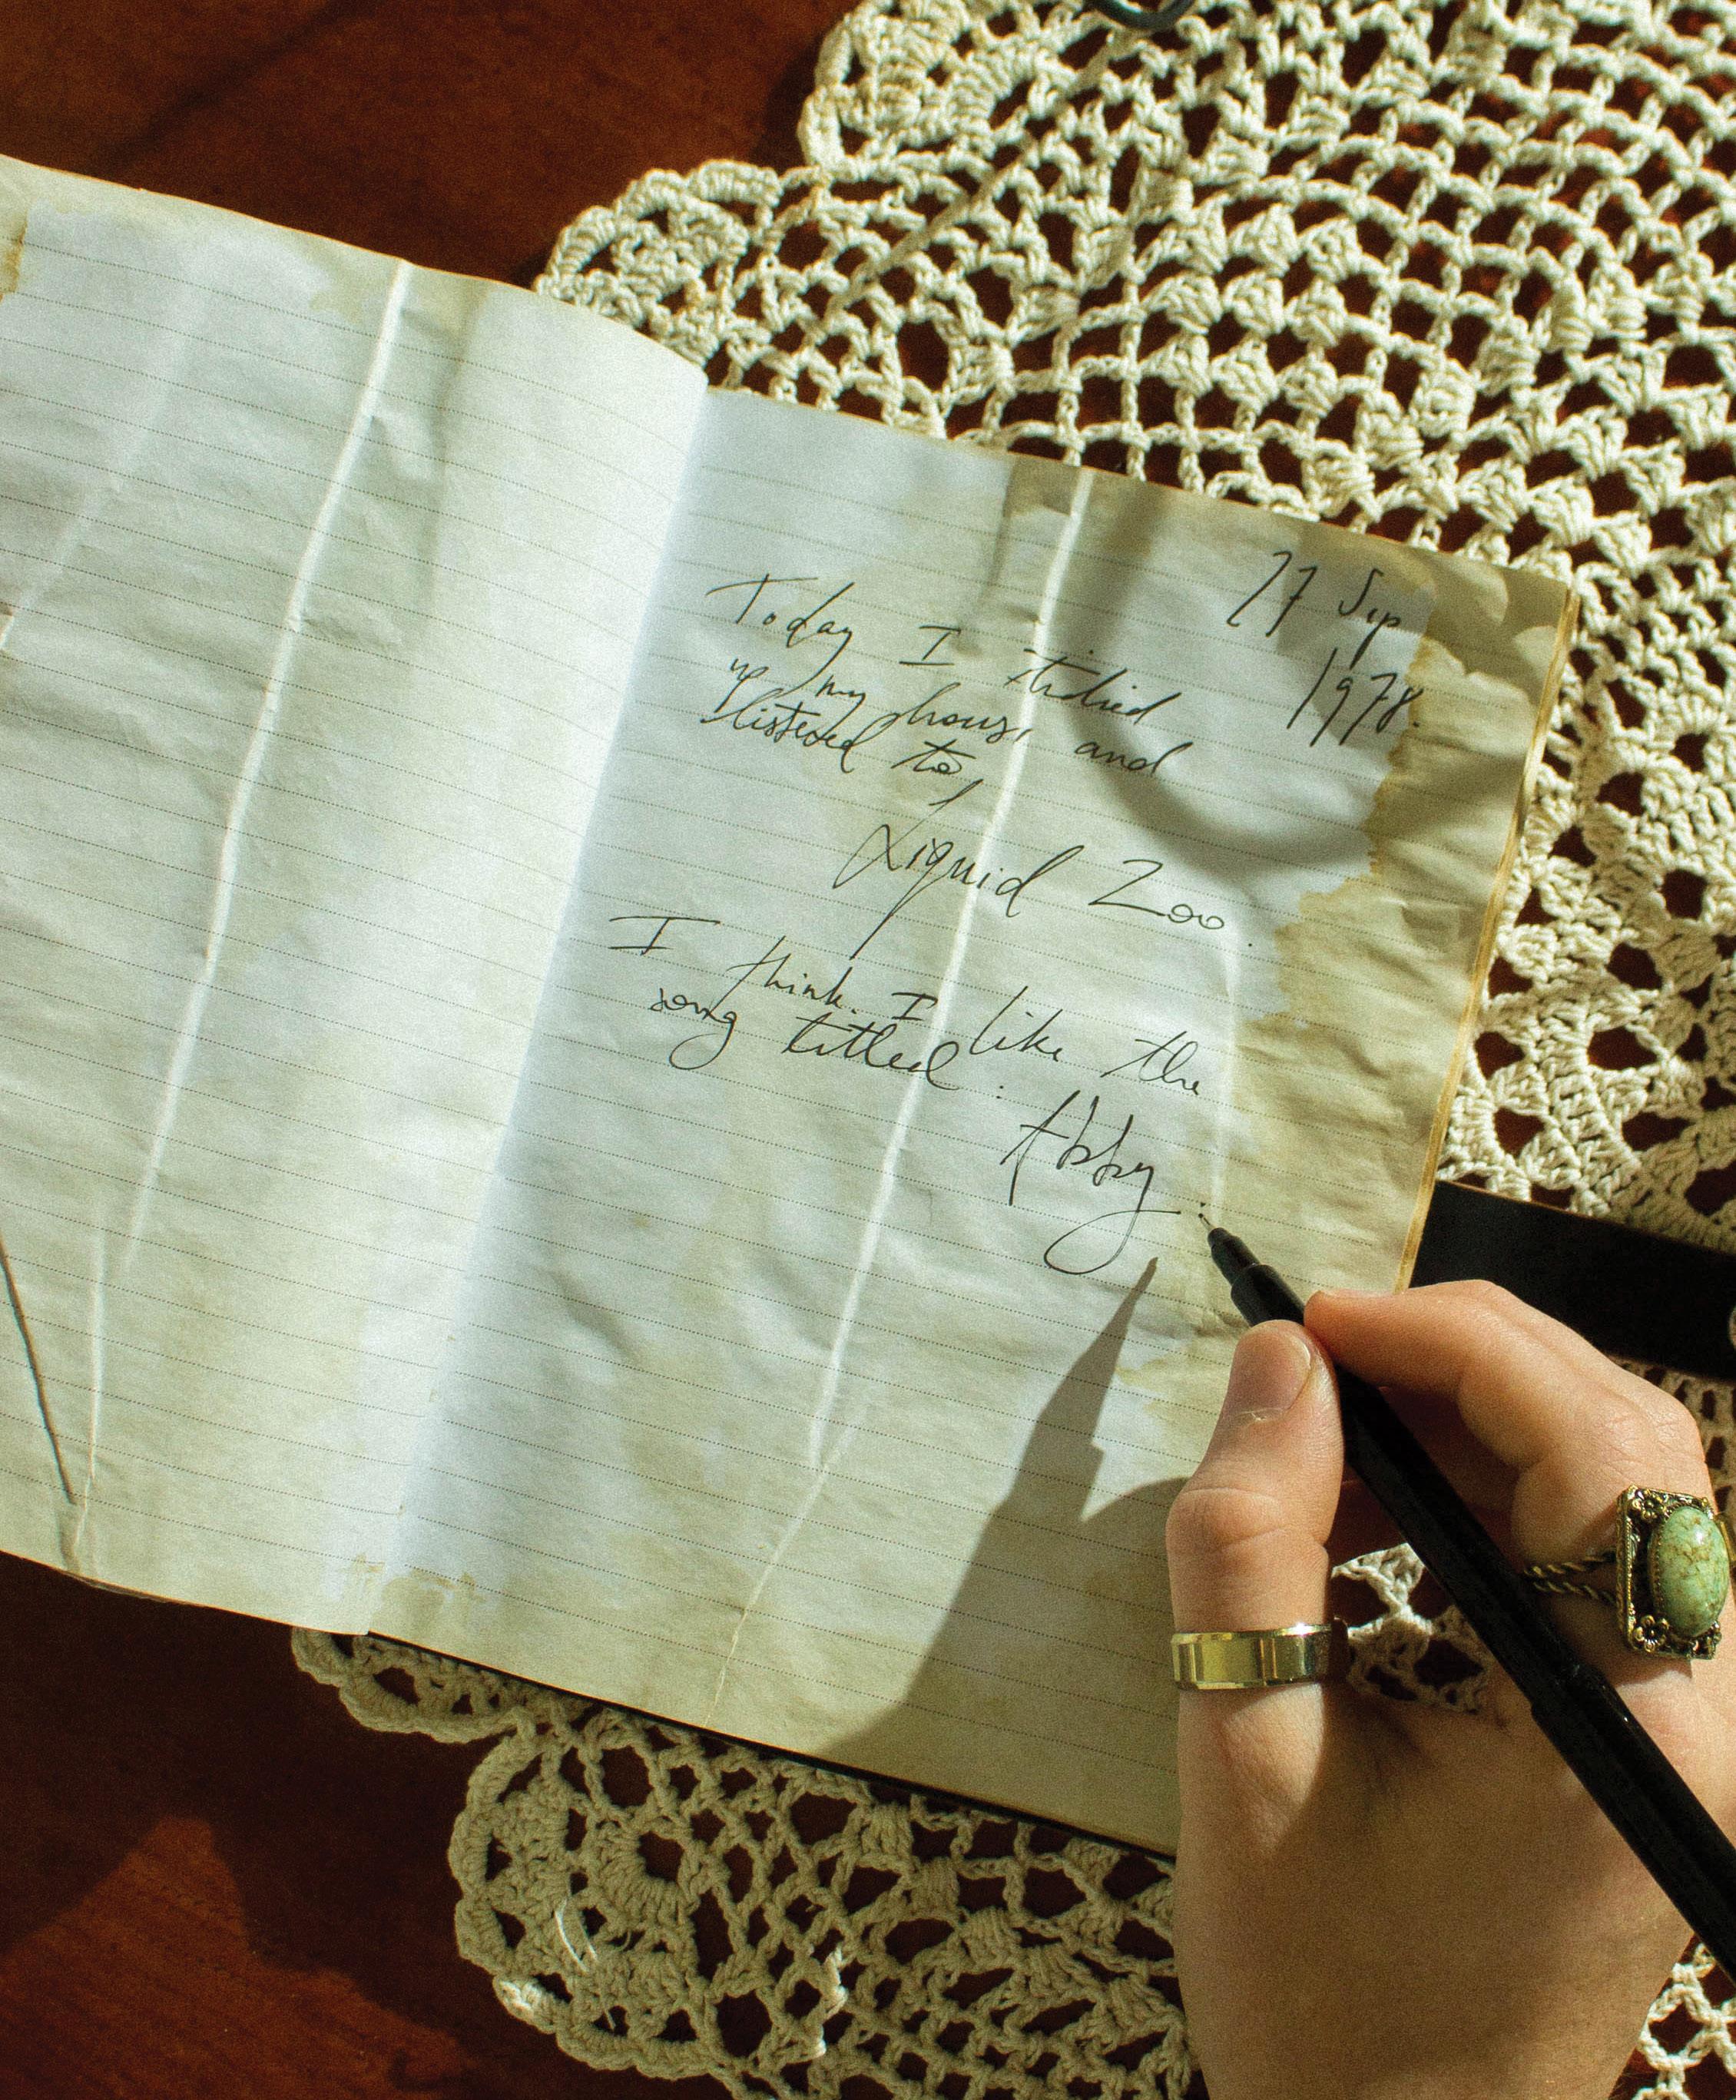 27 Sep
1978.
Today I tidied
up my house, and
listened to,
Liquid Zoo.
I think I like the
song titled :
Abby.